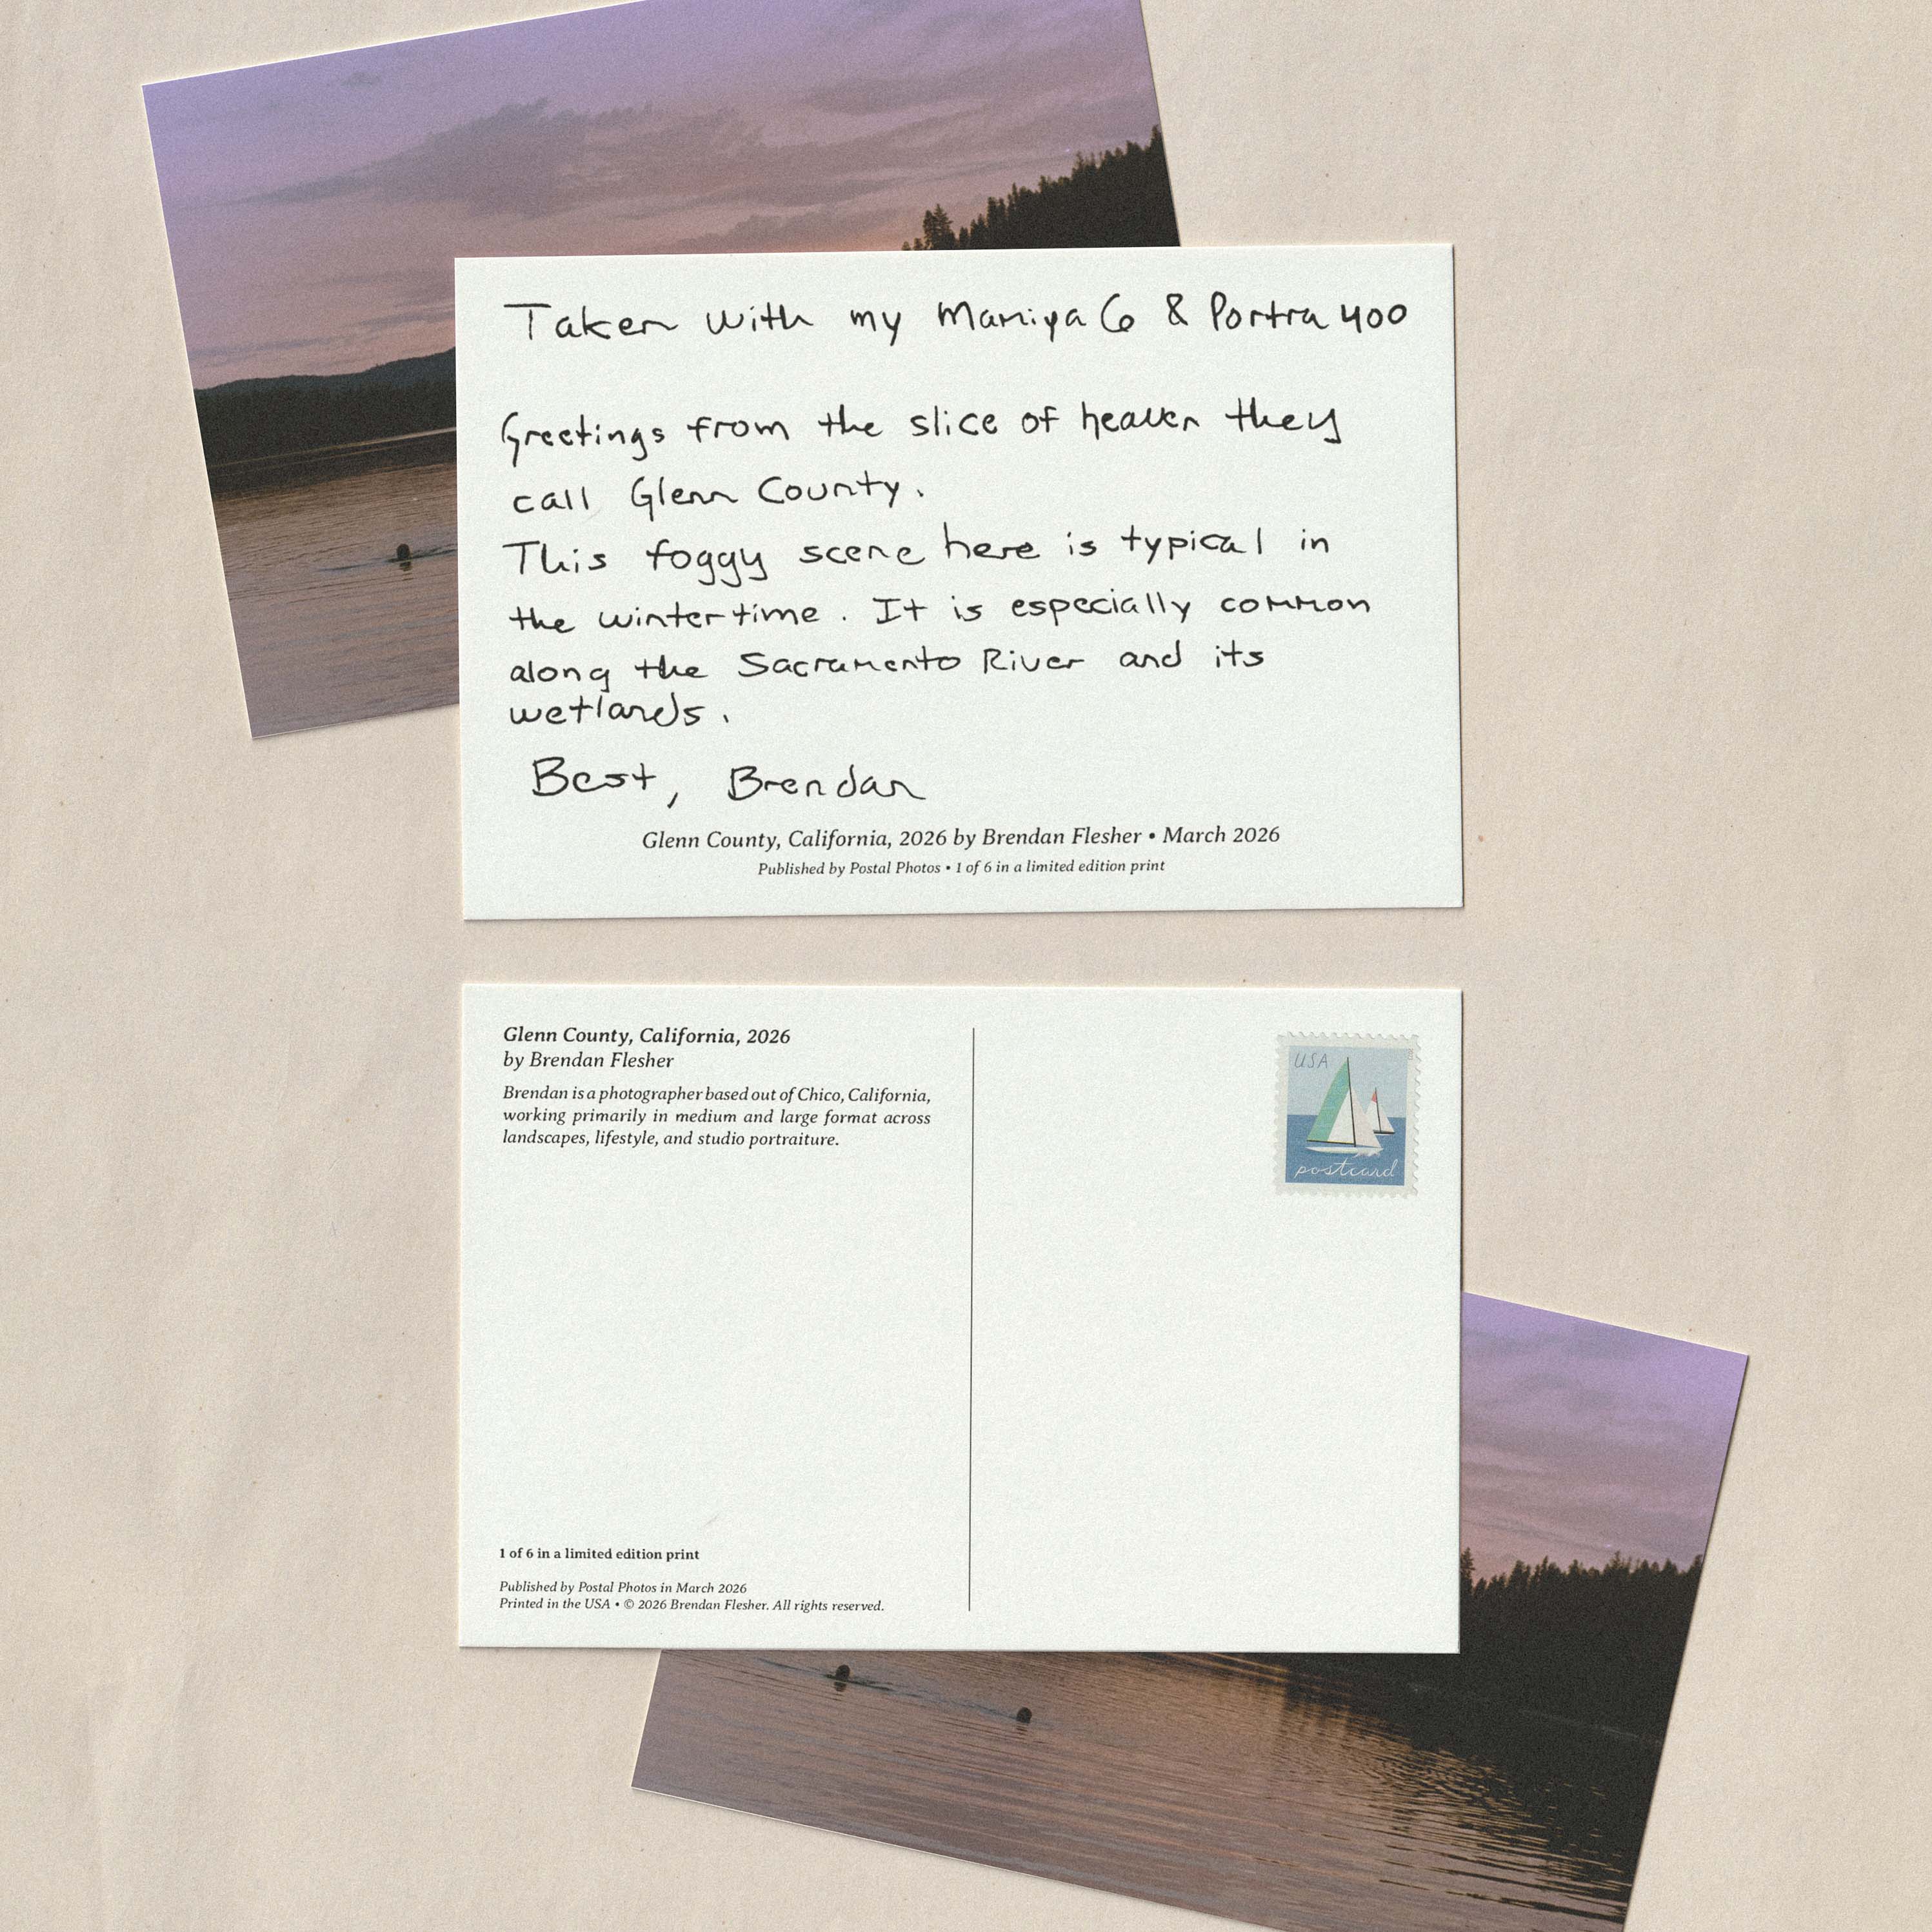 Taken with my Mamiya 6 & Portra 400
Greetings from the slice of heaven they
call Glenn County.
This foggy scene here is typical in
the wintertime. It is especially common
along the Sacramento River and its
wetlands.
Best, Brendan
Glenn County, California, 2026 by Brendan Flesher • March 2026
Published by Postal Photos • 1 of 6 in a limited edition print
Glenn County, California, 2026
by Brendan Flesher
Brendan is a photographer based out of Chico, California,
working primarily in medium and large format across
landscapes, lifestyle, and studio portraiture.
USA
postcard
1 of 6 in a limited edition print
Published by Postal Photos in March 2026
Printed in the USA • © 2026 Brendan Flesher. All rights reserved.